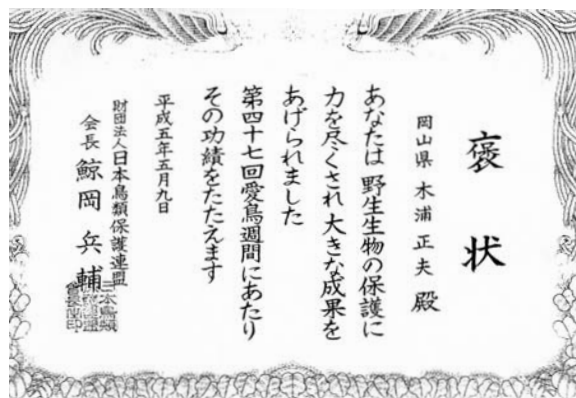 褒状
岡山県 木浦正夫 殿
あなたは野生生物の保護に
力を尽くされ大きな成果を
あげられました
第四十七回愛鳥週間にあたり
その功績をたたえます
平成五年五月九日
財団法人日本鳥類保護連盟
会長 鯨岡兵輔